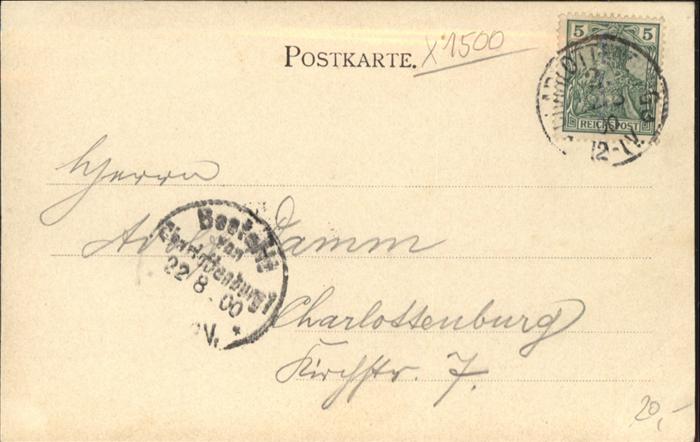 POSTKARTE.
X1500
5 5
REICHSPOST
12-1V.
Herrn
Damm
Charlottenburg
Kirchstr. 7.
Bestellt
von
Charlottenburg 1
22/8 00
V.
20,-